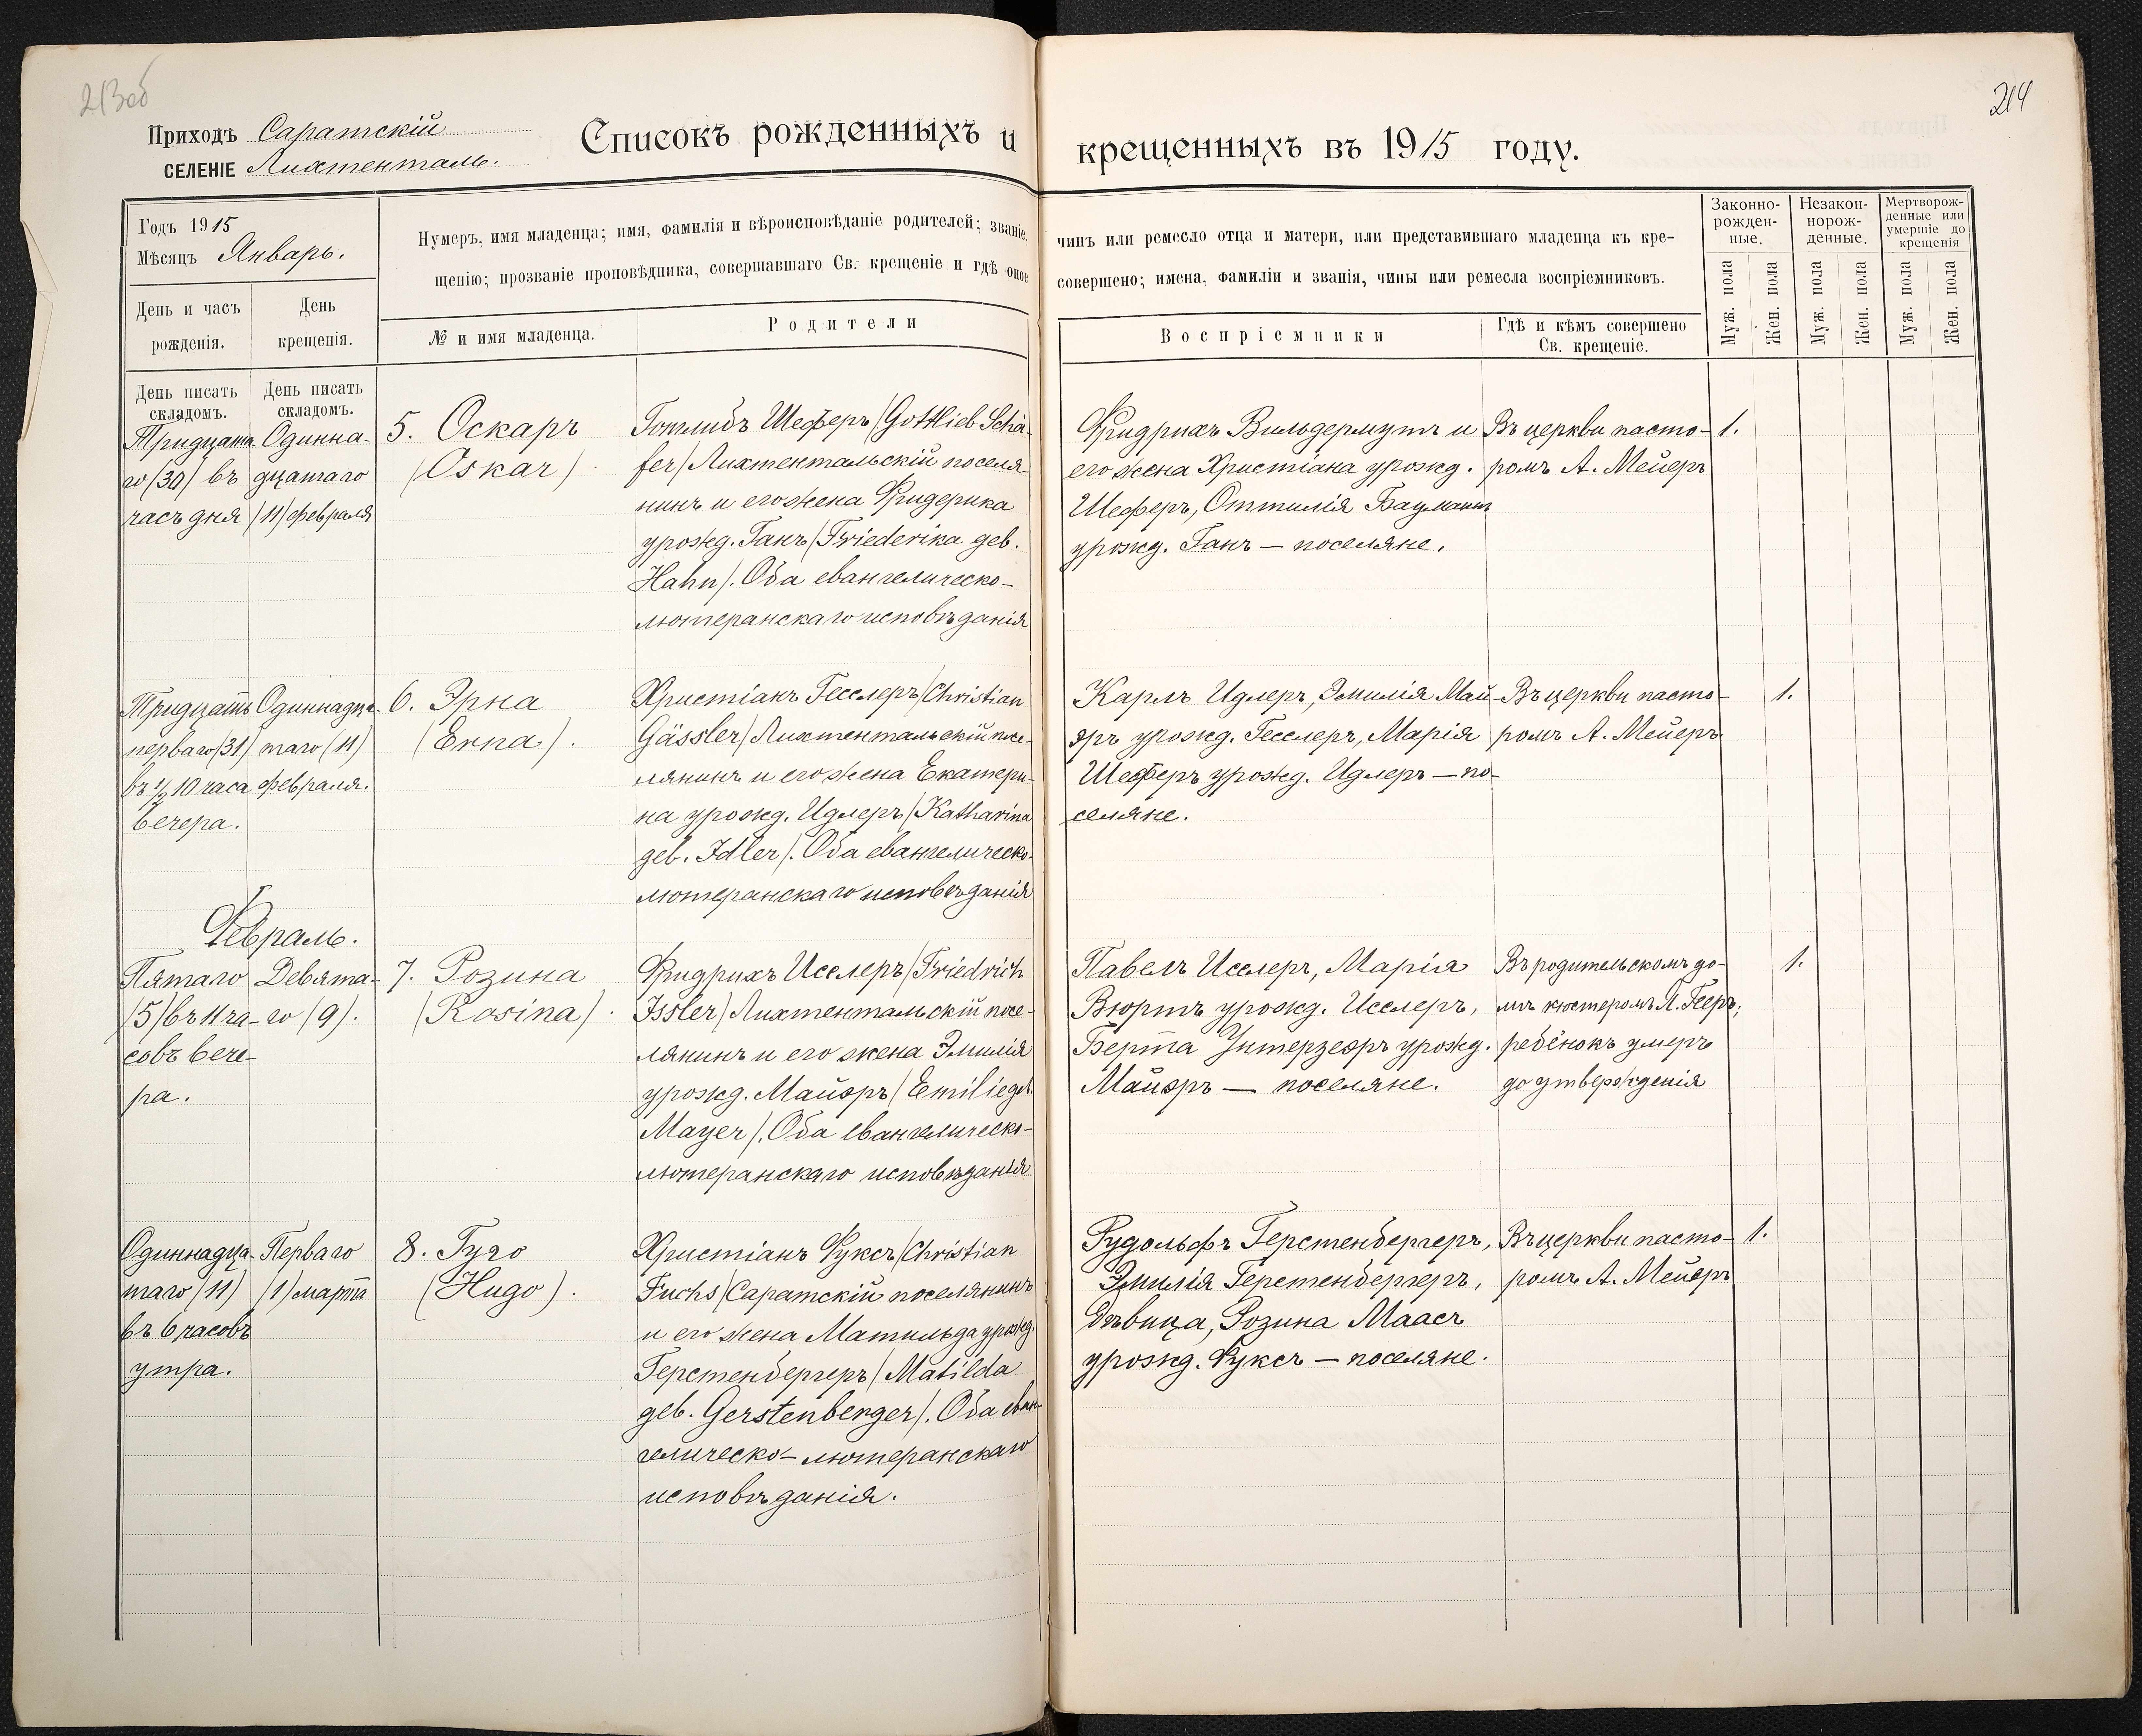 213об
214
Приходъ Саратскій
СЕЛЕНІЕ Лихтенталь.
Списокъ рожденныхъ и крещенныхъ въ 1915 году.
Годъ 1915
Мѣсяцъ Январь.
День и часъ
рожденія.
День
крещенія.
Нумеръ, имя младенца; имя, фамилія и вѣроисповѣданіе родителей; званіе, чинъ или ремесло отца и матери, или представившаго младенца къ кре-
щенію; прозваніе проповѣдника, совершавшаго Св. крещеніе и гдѣ оное совершено; имена, фамиліи и званія, чины или ремесла воспріемниковъ.
№ и имя младенца.
Родители
Воспріемники
Гдѣ и кѣмъ совершено
Св. крещеніе.
Законно-
рожден-
ные.
Незакон-
норож-
денные.
Мертворож-
денные или
умершіе до
крещенія
Муж. пола
Жен. пола
Муж. пола
Жен. пола
Муж. пола
Жен. пола
День писать
складомъ.
День писать
складомъ.
Тридцата-
го (30) въ
часъ дня
Одинна-
дцатаго
(11) февраля
5. Оскаръ
(Oskar).
Готлибъ Шеферъ (Gottlieb Schä-
fer) Лихтентальскій поселя-
нинъ и его жена Фридерика
урожд. Ганъ (Friederika geb.
Hahn). Оба евангелическо-
лютеранскаго исповѣданія
Фридрихъ Вильдермутъ и
его жена Христіана урожд.
Шеферъ, Оттилія Бауманъ
урожд. Ганъ — поселяне.
Въ церкви пасто-
ромъ А. Мейеръ
1.
Тридцать
перваго (31)
въ ½ 10 часа
вечера.
Одиннадца-
таго (11)
февраля.
6. Эрна
(Erna).
Христіанъ Гесслеръ (Christian
Gässler) Лихтентальскій посе-
лянинъ и его жена Екатери-
на урожд. Идлеръ (Katharina
geb. Idler). Оба евангелическо-
лютеранскаго исповѣданія
Карлъ Идлеръ, Эмилія Май-
эръ урожд. Гесслеръ, Марія
Шеферъ урожд. Идлеръ — по-
селяне.
Въ церкви пасто-
ромъ А. Мейеръ
1.
Февраль.
Пятаго
(5) въ 11 ча-
совъ вече-
ра.
Девята-
го (9).
7. Розина
(Rosina).
Фридрихъ Исслеръ (Friedrich
Issler) Лихтентальскій посе-
лянинъ и его жена Эмилія
урожд. Майэръ (Emilie geb.
Mayer). Оба евангелическо-
лютеранскаго исповѣданія
Павелъ Исслеръ, Марія
Вюртъ урожд. Исслеръ,
Берта Унтерзееръ урожд.
Майэръ — поселяне.
Въ родительскомъ до-
мѣ кюстеромъ Л. Гееръ;
ребёнокъ умеръ
до утвержденія
1.
Одиннадца-
таго (11)
въ 6 часовъ
утра.
Перваго
(1) марта
8. Гуго
(Hugo).
Христіанъ Фуксъ (Christian
Fuchs) Саратскій поселянинъ
и его жена Матильда урожд.
Герстенбергеръ (Matilda
geb. Gerstenberger). Оба еван-
гелическо-лютеранскаго
исповѣданія.
Рудольфъ Герстенбергеръ,
Эмилія Герстенбергеръ,
дѣвица, Розина Маасъ
урожд. Фуксъ — поселяне.
Въ церкви пасто-
ромъ А. Мейеръ
1.